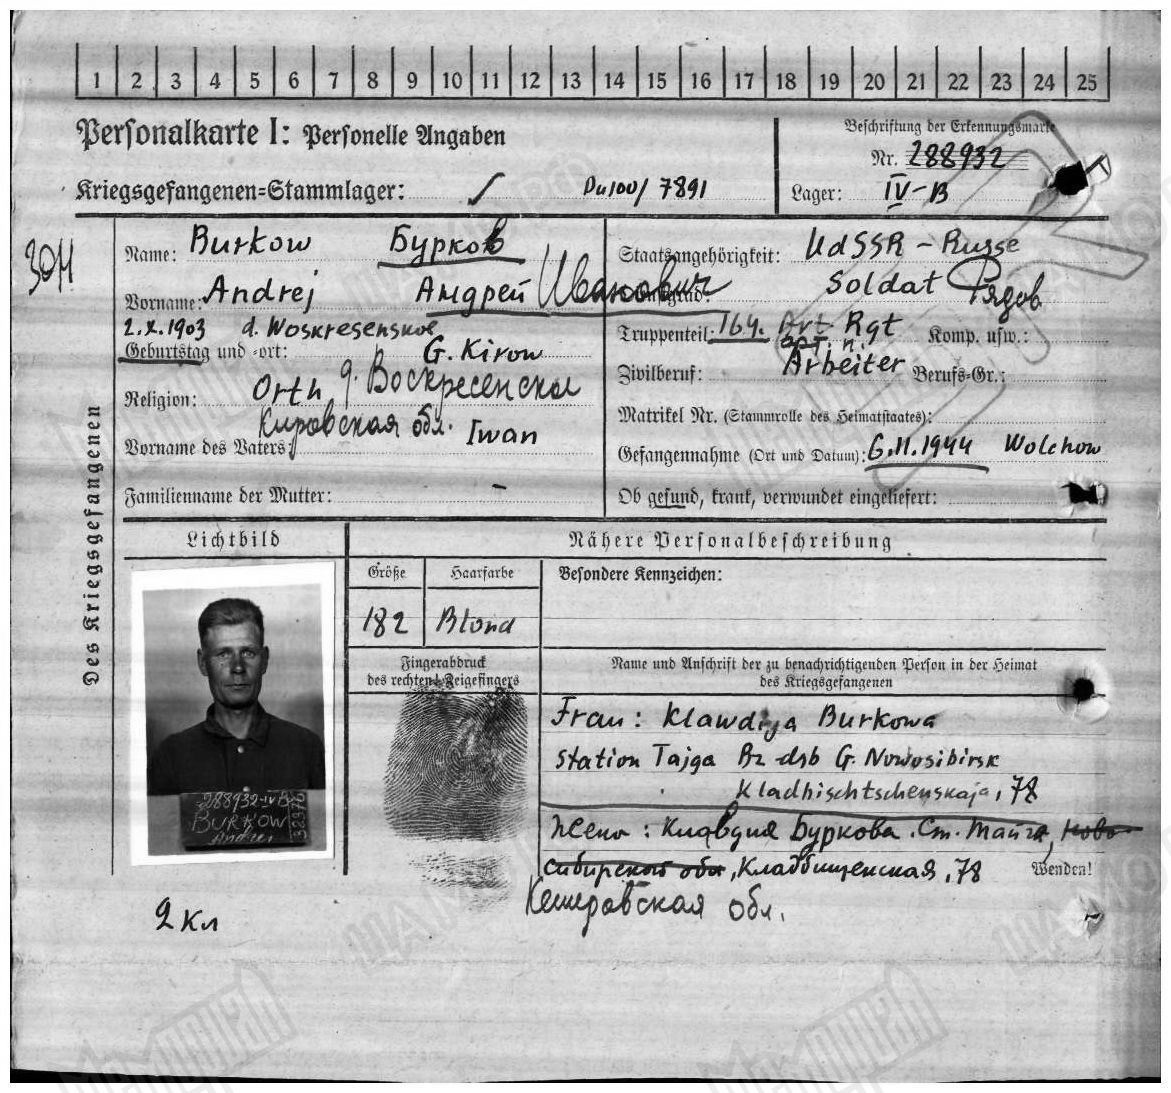 1 2 3 4 5 6 7 8 9 10 11 12 13 14 15 16 17 18 19 20 21 22 23 24 25
Personalkarte I: Personelle Angaben
Kriegsgefangenen=Stammlager: Dulou/ 7891
Beschriftung der Erkennungsmarke
Nr. 288932
Lager: IV-B
Des Kriegsgefangenen
Name: Burkow Бурков
Vorname: Andrej Андрей Иванович
2.X.1903 d. Woskresenskoe
Geburtstag und =ort: G. Kirow
Religion: Orth д. Воскресенское
Кировская обл.
Vorname des Vaters: Iwan
Familienname der Mutter: -
Staatsangehörigkeit: UdSSR - Russe
Dienstgrad: Soldat Рядов
Truppenteil: 164. Art Rgt Komp. usw.:
арт. п.
Zivilberuf: Arbeiter Berufs-Gr.:
Matrikel Nr. (Stammrolle des Heimatstaates):
Gefangennahme (Ort und Datum): 6.11.1944 Wolchow
Ob gesund, krank, verwundet eingeliefert:
Lichtbild
Nähere Personalbeschreibung
Größe
Haarfarbe
Besondere Kennzeichen:
182
Blond
Fingerabdruck
des rechten! Zeigefingers
Name und Anschrift der zu benachrichtigenden Person in der Heimat
des Kriegsgefangenen
Frau: Klawdija Burkowa
Station Tajga G. Nowosibirsk
Kladbischtschenskaja, 78
Жена: Клавдия Буркова. Ст. Тайга, Ново-
сибирской обл, Кладбищенская, 78
Wenden!
Кемеровская обл.
288932-IVB
BURKOW
Andrei
2 кл